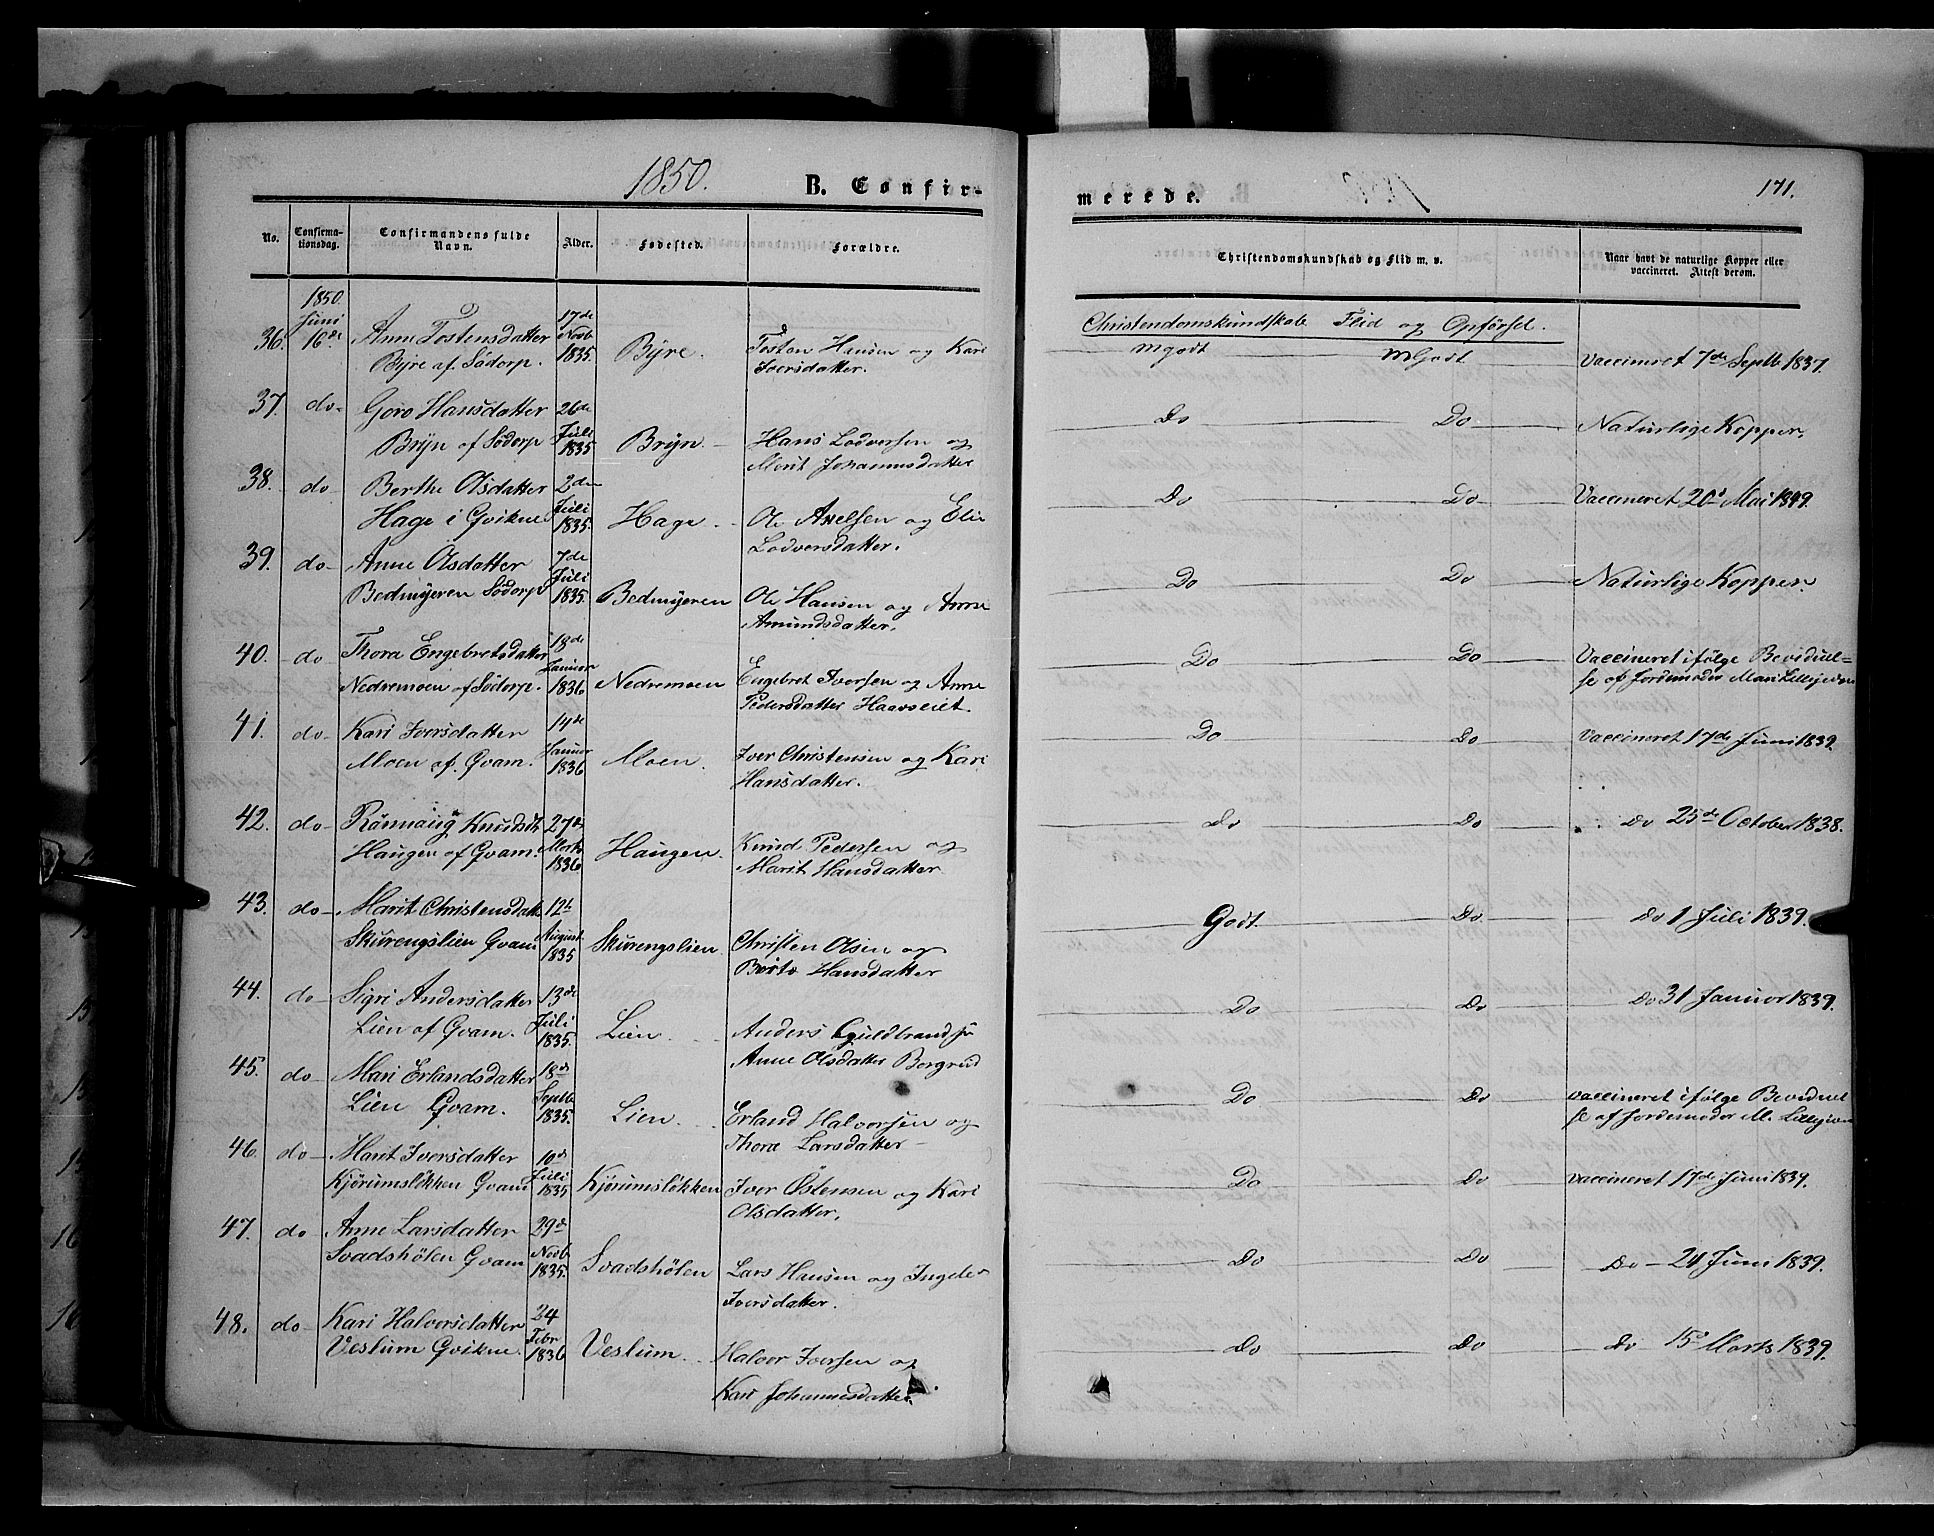 1850. B. Confir-
No. Confirma-tionsdag. Confirmandens fulde Navn. Alder. Fødested. Forældre.
1850.
36. Juni 16de Anne Tostensdatter 17de Novb 1835. Byre. Tosten Hansen og Kari
Byre af Södorp. Iversdatter.
37. do- Goro Hansdatter 26de Juli 1835 Bryn - Hans Lodversen og
Bryn af Södorp Marit Johannesdatter
38. do- Berthe Olsdatter 2den Juli 1835. Hage. Ole Axelsen og Eli
Hage i Qvikne Lodversdatter.
39. do- Anne Olsdatter 7de Juli 1835. Bedmyeren Ole Hansen og Anne
Bedmyeren Södorp Amundsdatter.
40. do- Thora Engebretsdatter 18de Januar 1836 Nedremoen Engebret Iversen og Anne
Nedremoen af Södorp. Pedersdatter
41. do- Kari Iversdatter 14de Januar 1836 Moen. Iver Christensen og Kari
Moen af Qvam. Hansdatter.
42. do- Rönnaug Knudsdt 27de Marts 1836 Haugen. Knud Pedersen og
Haugen af Qvam. Marit Hansdatter
43. do- Marit Christensdatt 12t August 1835 Skurengslien. Christen Olsen og
Skurengslien Qvam Hansdatter
44. do- Sigri Andersdatter 13de Juli 1835. Lien. Anders Guldbrands
Lien af Qvam. Anne Olsdatter Borgrud
45. do- Mari Erlandsdatter 18de Septb 1835. Lien. Erland Halvorsen og
Lien Qvam. Thora Larsdatter -
46. do- Marit Iversdatter 10de Juli 1835 Kjörumslökken Iver Östensen og Kari
Kjörumslökken Qvam Olsdatter.
47. do- Anne Larsdatter 29de Novb 1835. Svadshölen Lars Hansen og
Svadshölen Qvam Iversdatter.
48. do- Kari Halvorsdatter 24 Febr 1836 Veslum. Halvor Iversen og
Veslum Qvikne. Kari Johannesdatter.
merede. 171.
Christendomskundskab og Flid m. v. Naar havt de naturlige Kopper eller vaccineret. Attest derom.
Christendomskundskab Flid og Opförsel.
mgodt mGodt Vaccineret 7de Septb 1837.
Do Do Naturlige Kopper.
Do Do Vaccineret 20de Mai 1849.
Do Do Naturlige Kopper.
Do Do Vaccineret ifölge Bevidnel=
se af Jordemoder Mari
Do Do Vaccineret 17de Juni 1839.
Do Do Do 25de October 1838.
Godt. Do Do 1 Juli 1839.
Do Do Do 31 Januar 1839.
Do Do vaccineret ifölge Bevidnel
se af Jordemoder M.
Do Do vaccineret 17de Juni 1839.
Do Do Do 24 Juni 1839.
Do Do Do 15de Marts 1839.